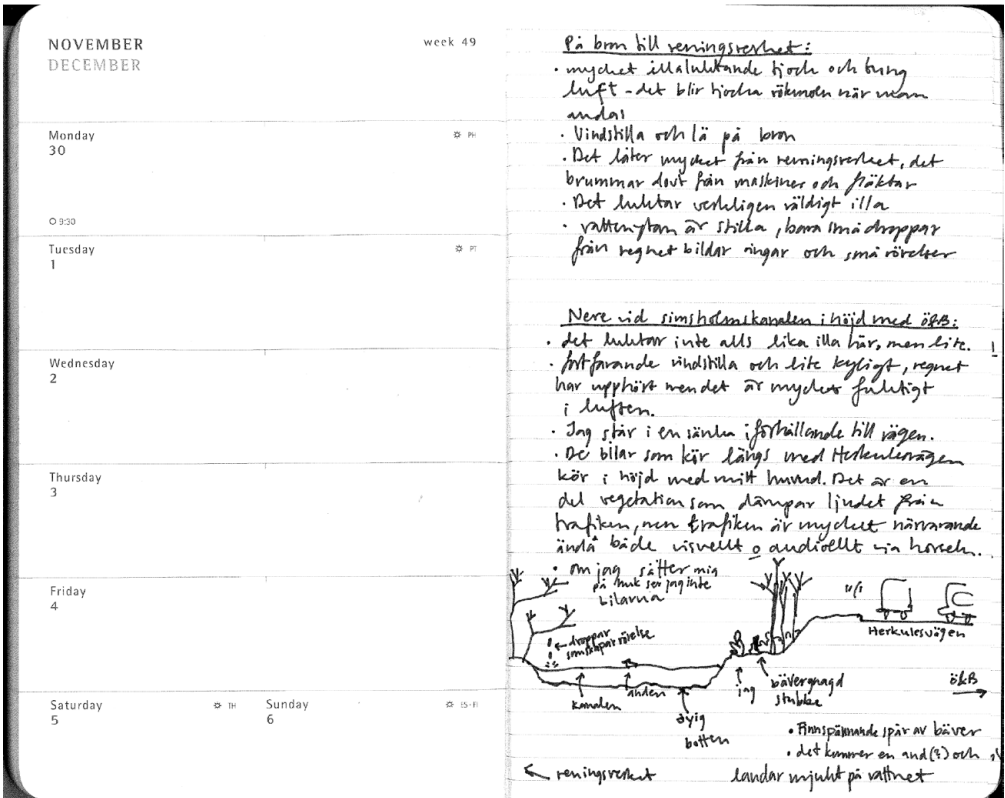 NOVEMBER
DECEMBER
week 49
Monday
30
PH
9:30
Tuesday
1
PT
Wednesday
2
Thursday
3
Friday
4
Saturday
5
TH
Sunday
6
ES-FI
På bron till reningsverket:
• mycket illaluktande tjock och tung
luft - det blir tjocka rökmoln när man
andas
• Vindstilla och lä på bron
• Det låter mycket från reningsverket, det
brummar dovt från maskiner och fläktar
• Det luktar verkligen väldigt illa
• vattenytan är stilla, bara små droppar
från regnet bildar ringar och små rörelser
Nere vid simsholmskanalen i höjd med ökB:
• det luktar inte alls lika illa här, men lite. !
• fortfarande vindstilla och lite kyligt, regnet
har upphört men det är mycket fuktigt
i luften.
• Jag står i en sänka i förhållande till vägen.
• De bilar som kör längs med Herkulesvägen
kör i höjd med mitt huvud. Det är en
del vegetation som dämpar ljudet från
trafiken, men trafiken är mycket närvarande
ändå både visuellt o audioellt via horseln.
• om jag sätter mig
på huk ser jag inte
bilarna
droppar
som skapar rörelse
Herkulesvägen
kanalen
anden
jag
bävergnagd
stubbe
dyig
botten
ökB
• Finns pännande spår av bäver
• det kommer en and(?) och
landar mjukt på vattnet
← reningsverket